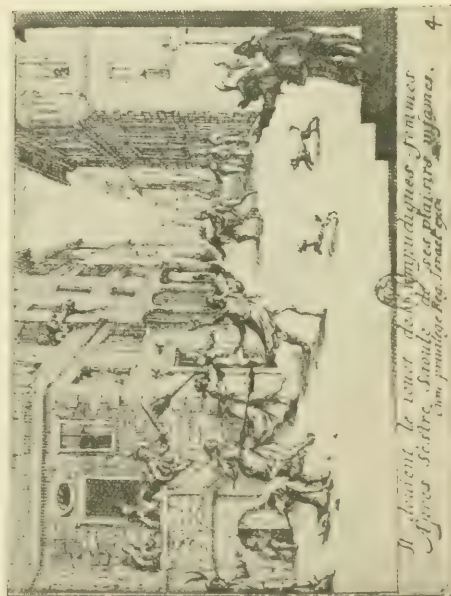 Il devient le iouet des impudiques femmes
Apres s'estre saoulé de ses plaisirs infames.
Cum privilegio Reg. Israel excu
4